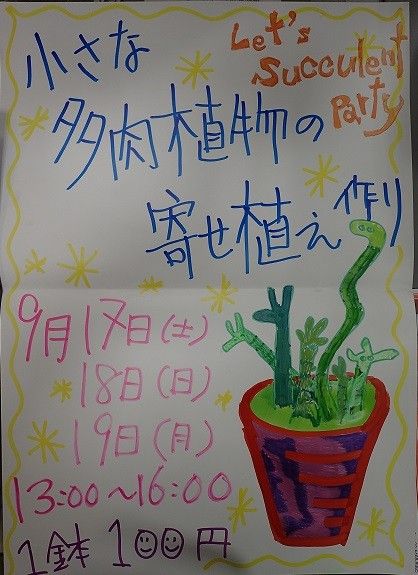 小さな
多肉植物の
寄せ植え作り
Let's
Succulent
Party
9月17日(土)
18日(日)
19日(月)
13:00~16:00
1鉢 100円